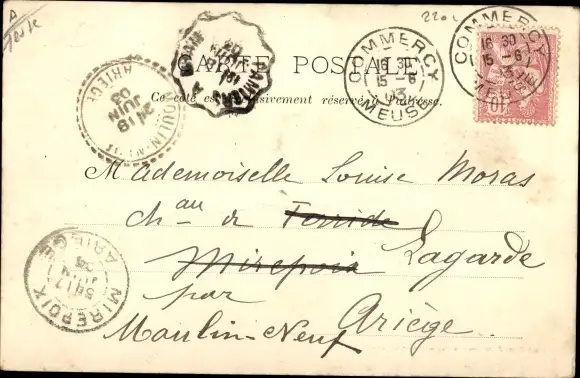 A
220c
CARTE POSTALE
Ce côté est exclusivement réservé à l'adresse.
COMMERCY
16 30
15 - 6
03
MEUSE
COMMERCY
16 30
15 - 6
MEUSE
10
MOULIN-NEUF
19
JUIN
03
ARIEGE
MIREPOIX
ARIEGE
Mademoiselle Louise Moras
Chau de Terride Lagarde
Mirepoix
par
Moulin-Neuf Ariège